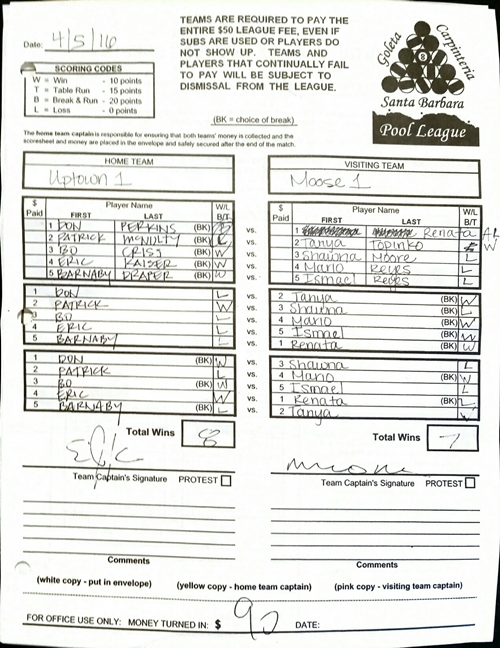 TEAMS ARE REQUIRED TO PAY THE
ENTIRE $50 LEAGUE FEE, EVEN IF
SUBS ARE USED OR PLAYERS DO
NOT SHOW UP. TEAMS AND
PLAYERS THAT CONTINUALLY FAIL
TO PAY WILL BE SUBJECT TO
DISMISSAL FROM THE LEAGUE.
Date: 4/5/16
SCORING CODES
W = Win - 10 points
T = Table Run - 15 points
B = Break & Run - 20 points
L = Loss - 0 points
(BK = choice of break)
Goleta
Carpinteria
Santa Barbara
Pool League
The home team captain is responsible for ensuring that both teams' money is collected and the
scoresheet and money are placed in the envelope and safely secured after the end of the match.
HOME TEAM
Uptown 1
VISITING TEAM
Moose 1
$ Paid Player Name FIRST LAST W/L B/T
1 DON PERKINS (BK)
2 PATRICK McNULTY (BK)
3 BO CRISS (BK) W
4 ERIC KAISER (BK) W
5 BARNABY DRAPER (BK) W
vs.
vs.
vs.
vs.
vs.
$ Paid Player Name FIRST LAST W/L B/T
1 Renata
2 Tanya Topinko W
3 Shawna Moore L
4 Mario Reyes L
5 Ismael Reyes L
1 DON L
2 PATRICK W
3 BO L
4 ERIC L
5 BARNABY L
vs.
vs.
vs.
vs.
vs.
2 Tanya (BK) W
3 Shawna (BK) L
4 Mario (BK) W
5 Ismael (BK) W
1 Renata (BK) W
1 DON (BK) W
2 PATRICK L
3 BO (BK) W
4 ERIC W
5 BARNABY (BK) L
vs.
vs.
vs.
vs.
vs.
3 Shawna L
4 Mario (BK) W
5 Ismael L
1 Renata (BK) L
2 Tanya W
Total Wins 8
Total Wins 7
Team Captain's Signature PROTEST
Team Captain's Signature PROTEST
Comments
Comments
(white copy - put in envelope) (yellow copy - home team captain) (pink copy - visiting team captain)
FOR OFFICE USE ONLY: MONEY TURNED IN: $ 90 DATE: